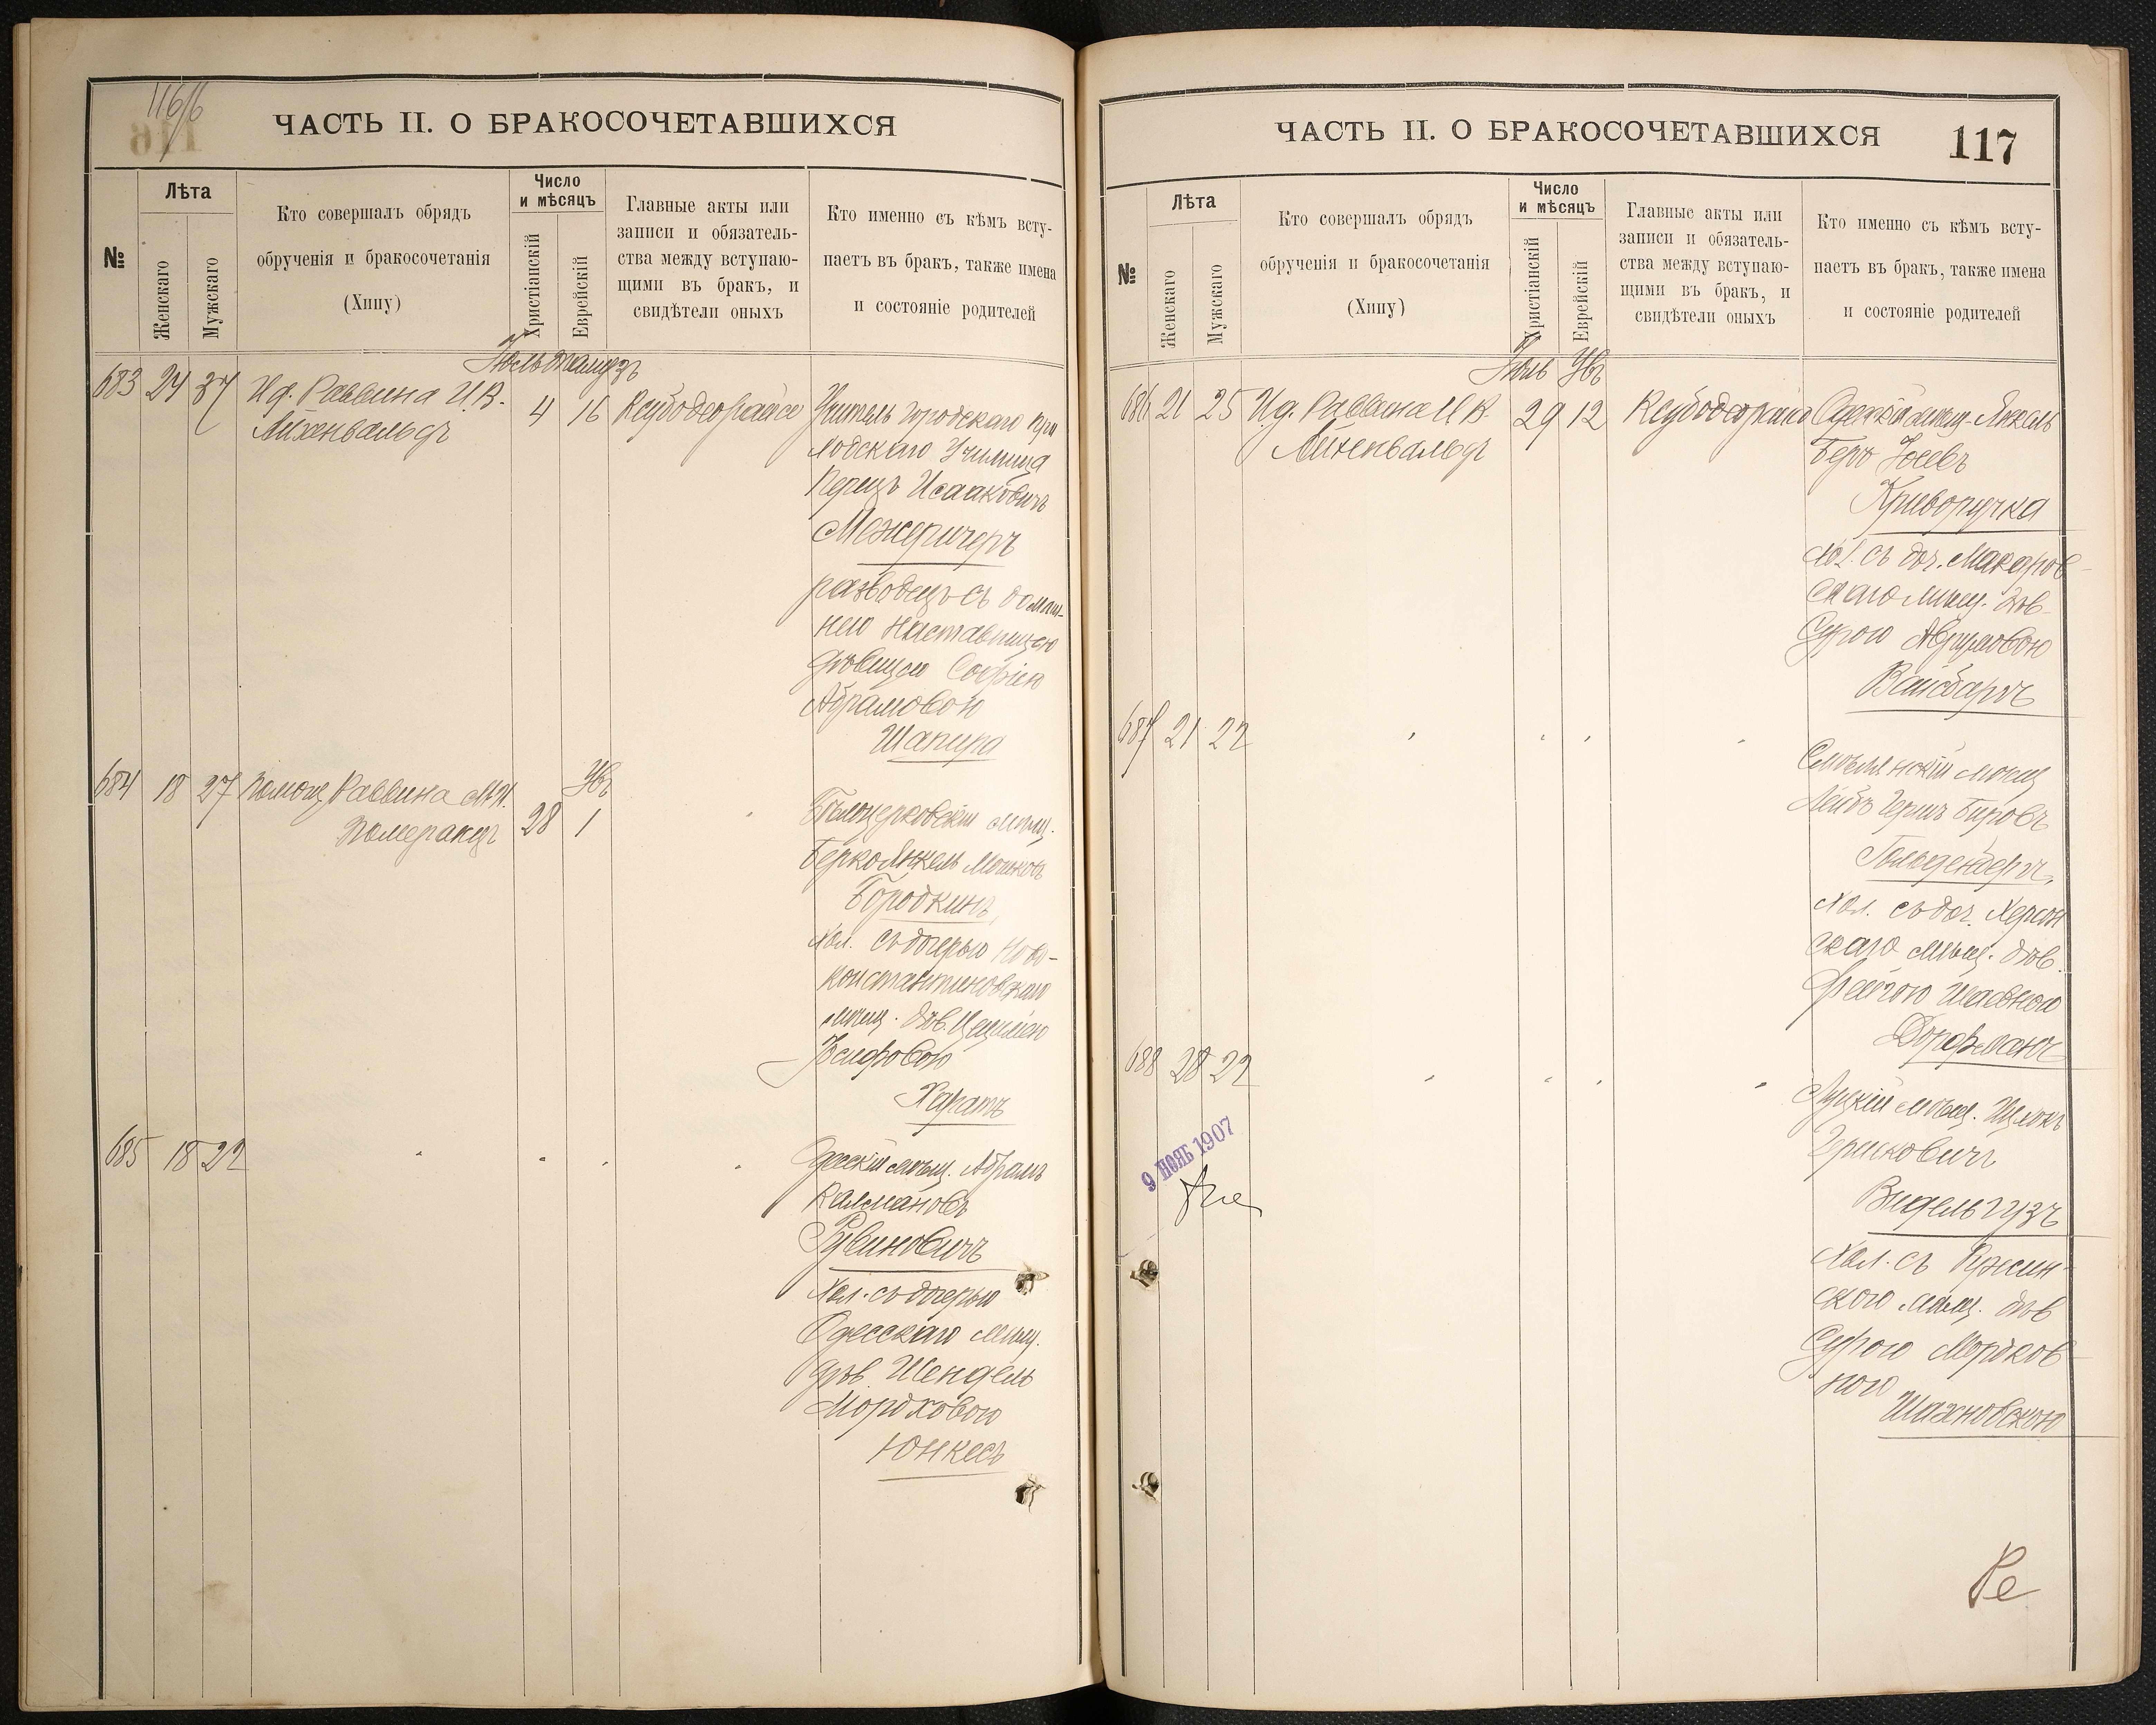 116/б
ЧАСТЬ II. О БРАКОСОЧЕТАВШИХСЯ
№
Лѣта
Женскаго
Мужскаго
Кто совершалъ обрядъ
обрученія и бракосочетанія
(Хипу)
Число
и мѣсяцъ
Христіанскій
Еврейскій
Главные акты или
записи и обязатель-
ства между вступаю-
щими въ бракъ, и
свидѣтели оныхъ
Кто именно съ кѣмъ всту-
паетъ въ бракъ, также имена
и состояніе родителей
Іюль Тамузъ
683 24 37 И д. Раввина И. В.
Айхенвальдъ
4 16
Учитель городского при
ходскаго Училища
Перецъ Исааковичъ
Межеричеръ
разводецъ съ домаш-
нею наставницею
дѣвицею Софіею
Абрамовою
Шапиро
684 18 27 Помощ. Раввина М. И.
Померанцъ
Увъ
28 1
Бѣлоцерковскій мѣщ.
Берко Янкель Мошковъ
Бородкинъ,
хол. съ дочерью Ново-
константиновскаго
мѣщ. дѣв. Цецилею
Іосифовою
Харатъ
685 18 22
Одесскій мѣщ. Абрамъ
Калмановъ
Рувиновичъ
Хол. съ дочерью
Одесскаго мѣщ.
дѣв. Шендель
Мордковою
Юнкесъ
ЧАСТЬ II. О БРАКОСОЧЕТАВШИХСЯ
117
№
Лѣта
Женскаго
Мужскаго
Кто совершалъ обрядъ
обрученія и бракосочетанія
(Хипу)
Число
и мѣсяцъ
Христіанскій
Еврейскій
Главные акты или
записи и обязатель-
ства между вступаю-
щими въ бракъ, и
свидѣтели оныхъ
Кто именно съ кѣмъ всту-
паетъ въ бракъ, также имена
и состояніе родителей
Іюль Увъ
686 21 25 И. д. Раввина И. В.
Айхенвальдъ
29 12
мѣщ. Янкель
Беръ Іосевъ
Криворучка
хол. съ доч. Макаров-
скаго мѣщ. дѣв.
Сурою Аврумовою
Вайсбергъ
687 21 22
мѣщ
Лейбъ Гершъ Беровъ
Гольденбергъ,
хол. съ доч. Херсон
скаго мѣщ. дѣв.
Фейгою
Дорфманъ
688 28 22
Луцкій мѣщ. Ицхокъ
Гершковичъ
Видельгузъ
Хол. съ Ружин-
ского мѣщ. дѣв
Сурою Мордков
ною
Шахновскою
9 НОЯБ 1907